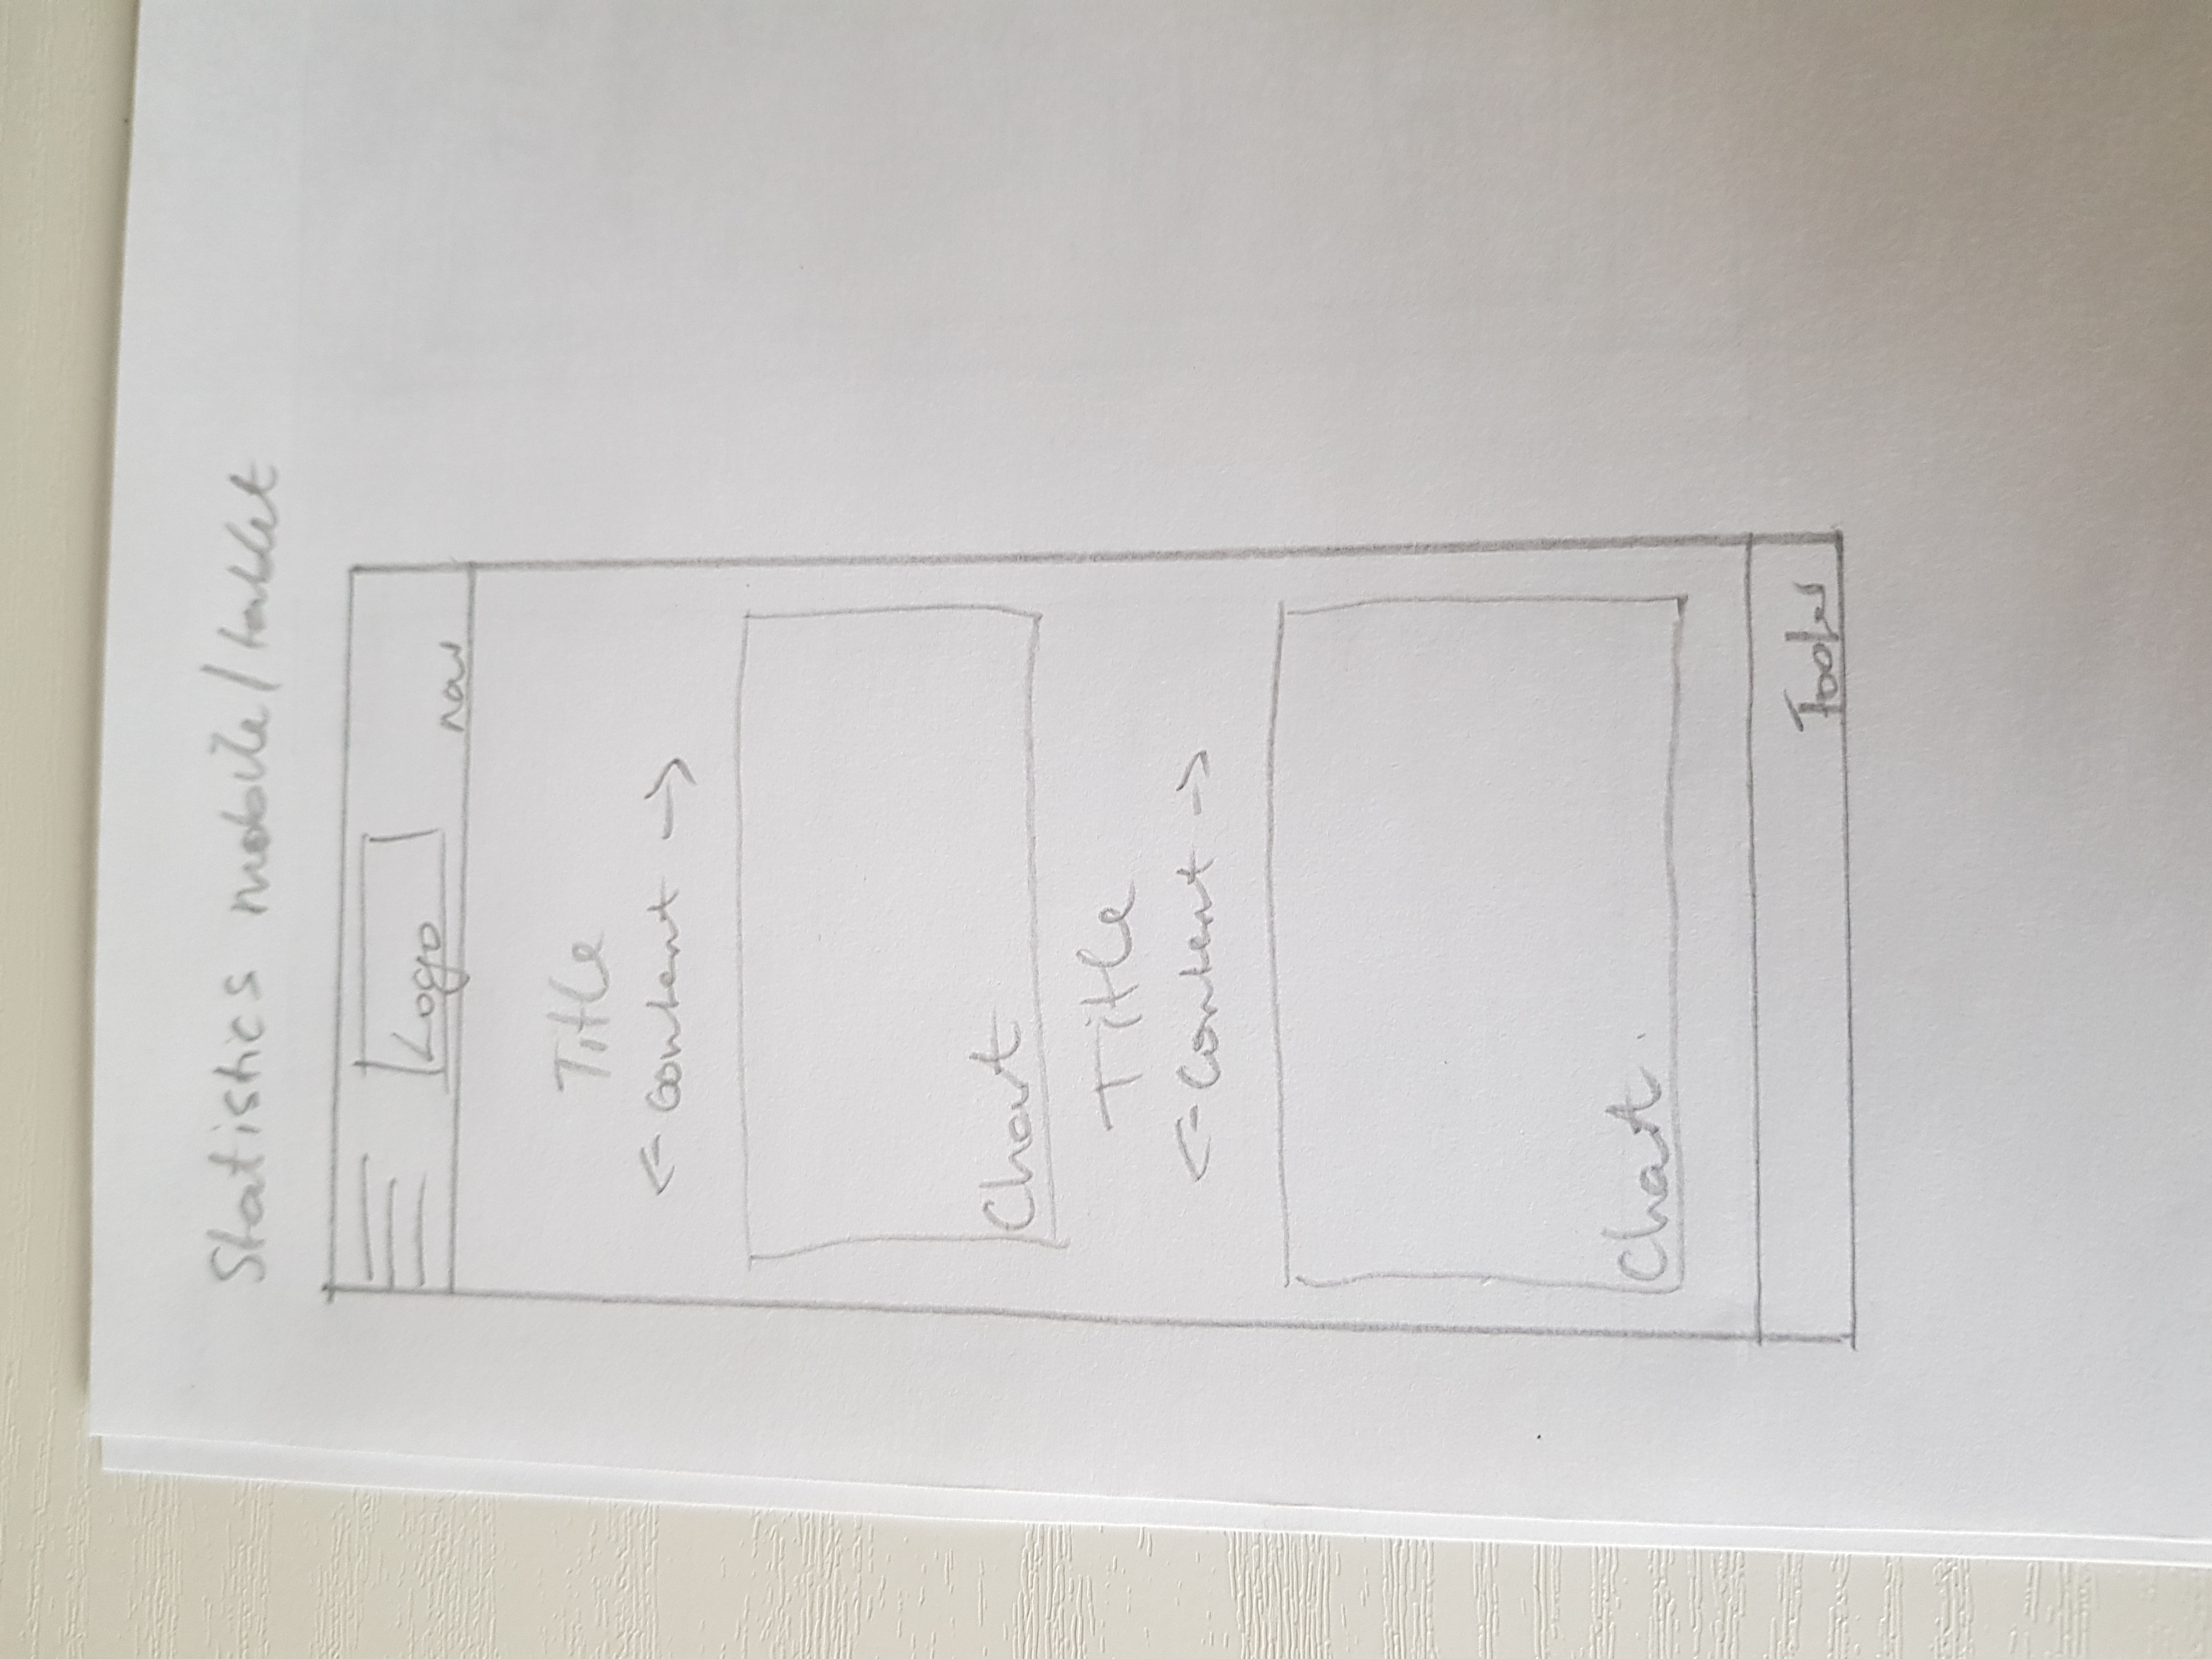 Statistics mobile/tablet
Logo
nav
Title
<- Content ->
Chart
Title
<- Content ->
Chart
Footer